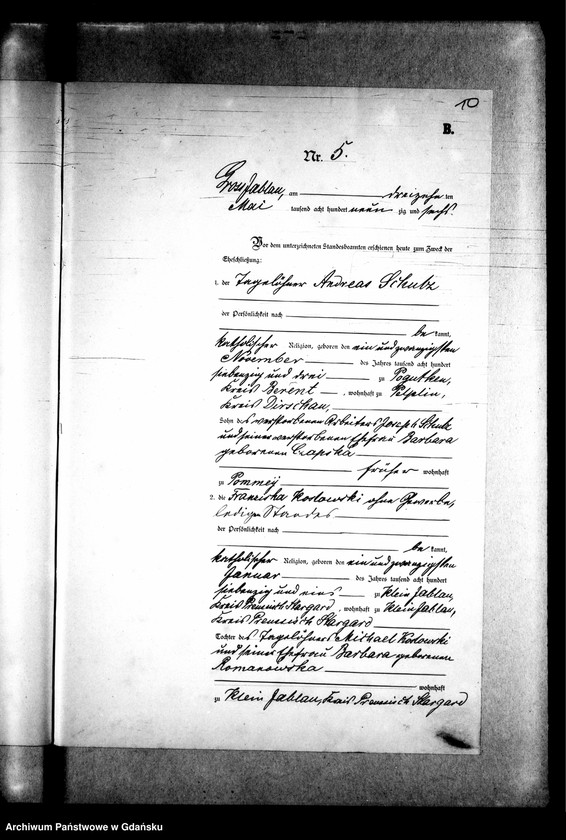 10
B.
Nr. 5.
Gross Jablau, am dreizehn ten
Mai tausend acht hundert neun zig und sechs.
Vor dem unterzeichneten Standesbeamten erschienen heute zum Zweck der
Eheschließung:
1. der Tagelöhner Andreas Schulz
der Persönlichkeit nach
be kannt,
katholischer Religion, geboren den ein und zwanzigsten
November des Jahres tausend acht hundert
siebenzig und drei zu Pogutken,
Kreis Berent, wohnhaft zu Pelplin,
Kreis Dirschau,
Sohn des verstorbenen Arbeiters Joseph Schulz
und seiner verstorbenen Ehefrau Barbara
geborenen Czapska
früher wohnhaft
zu Pommey
2. die Franciska Kozlowski ohne Gewerbe,
ledigen Standes
der Persönlichkeit nach
be kannt,
katholischer Religion, geboren den ein und zwanzigsten
Januar des Jahres tausend acht hundert
siebenzig und eins zu Klein Jablau,
Kreis Preussisch Stargard, wohnhaft zu Klein Jablau,
Kreis Preussisch Stargard
Tochter des Tagelöhners Michael Kozlowski
und seiner Ehefrau Barbara geborenen
Romanowska
wohnhaft
zu Klein Jablau, Kreis Preussisch Stargard
Archiwum Państwowe w Gdańsku